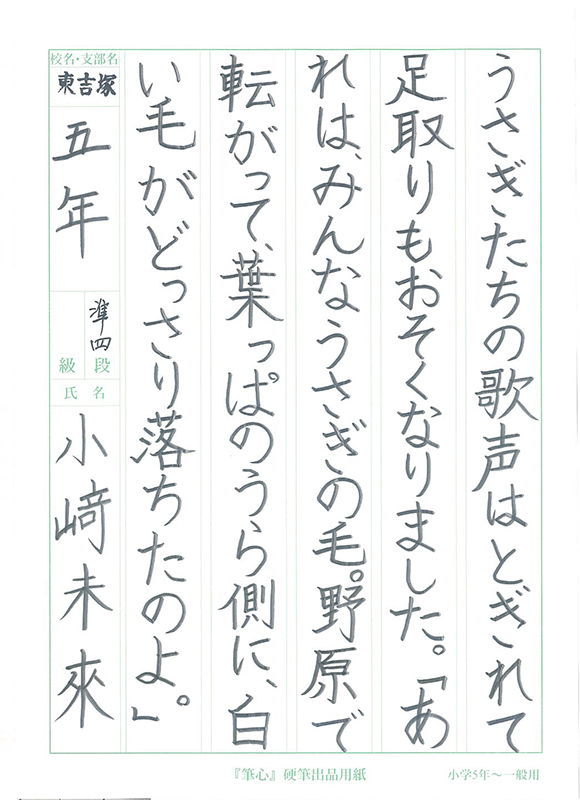 うさぎたちの歌声はとぎれて
足取りもおそくなりました。「あ
れは、みんなうさぎの毛。野原で
転がって、葉っぱのうら側に、白
い毛がどっさり落ちたのよ。」
校名・支部名
東吉塚
五年
準四
級段
氏名
小﨑未來
『筆心』硬筆出品用紙
小学5年〜一般用